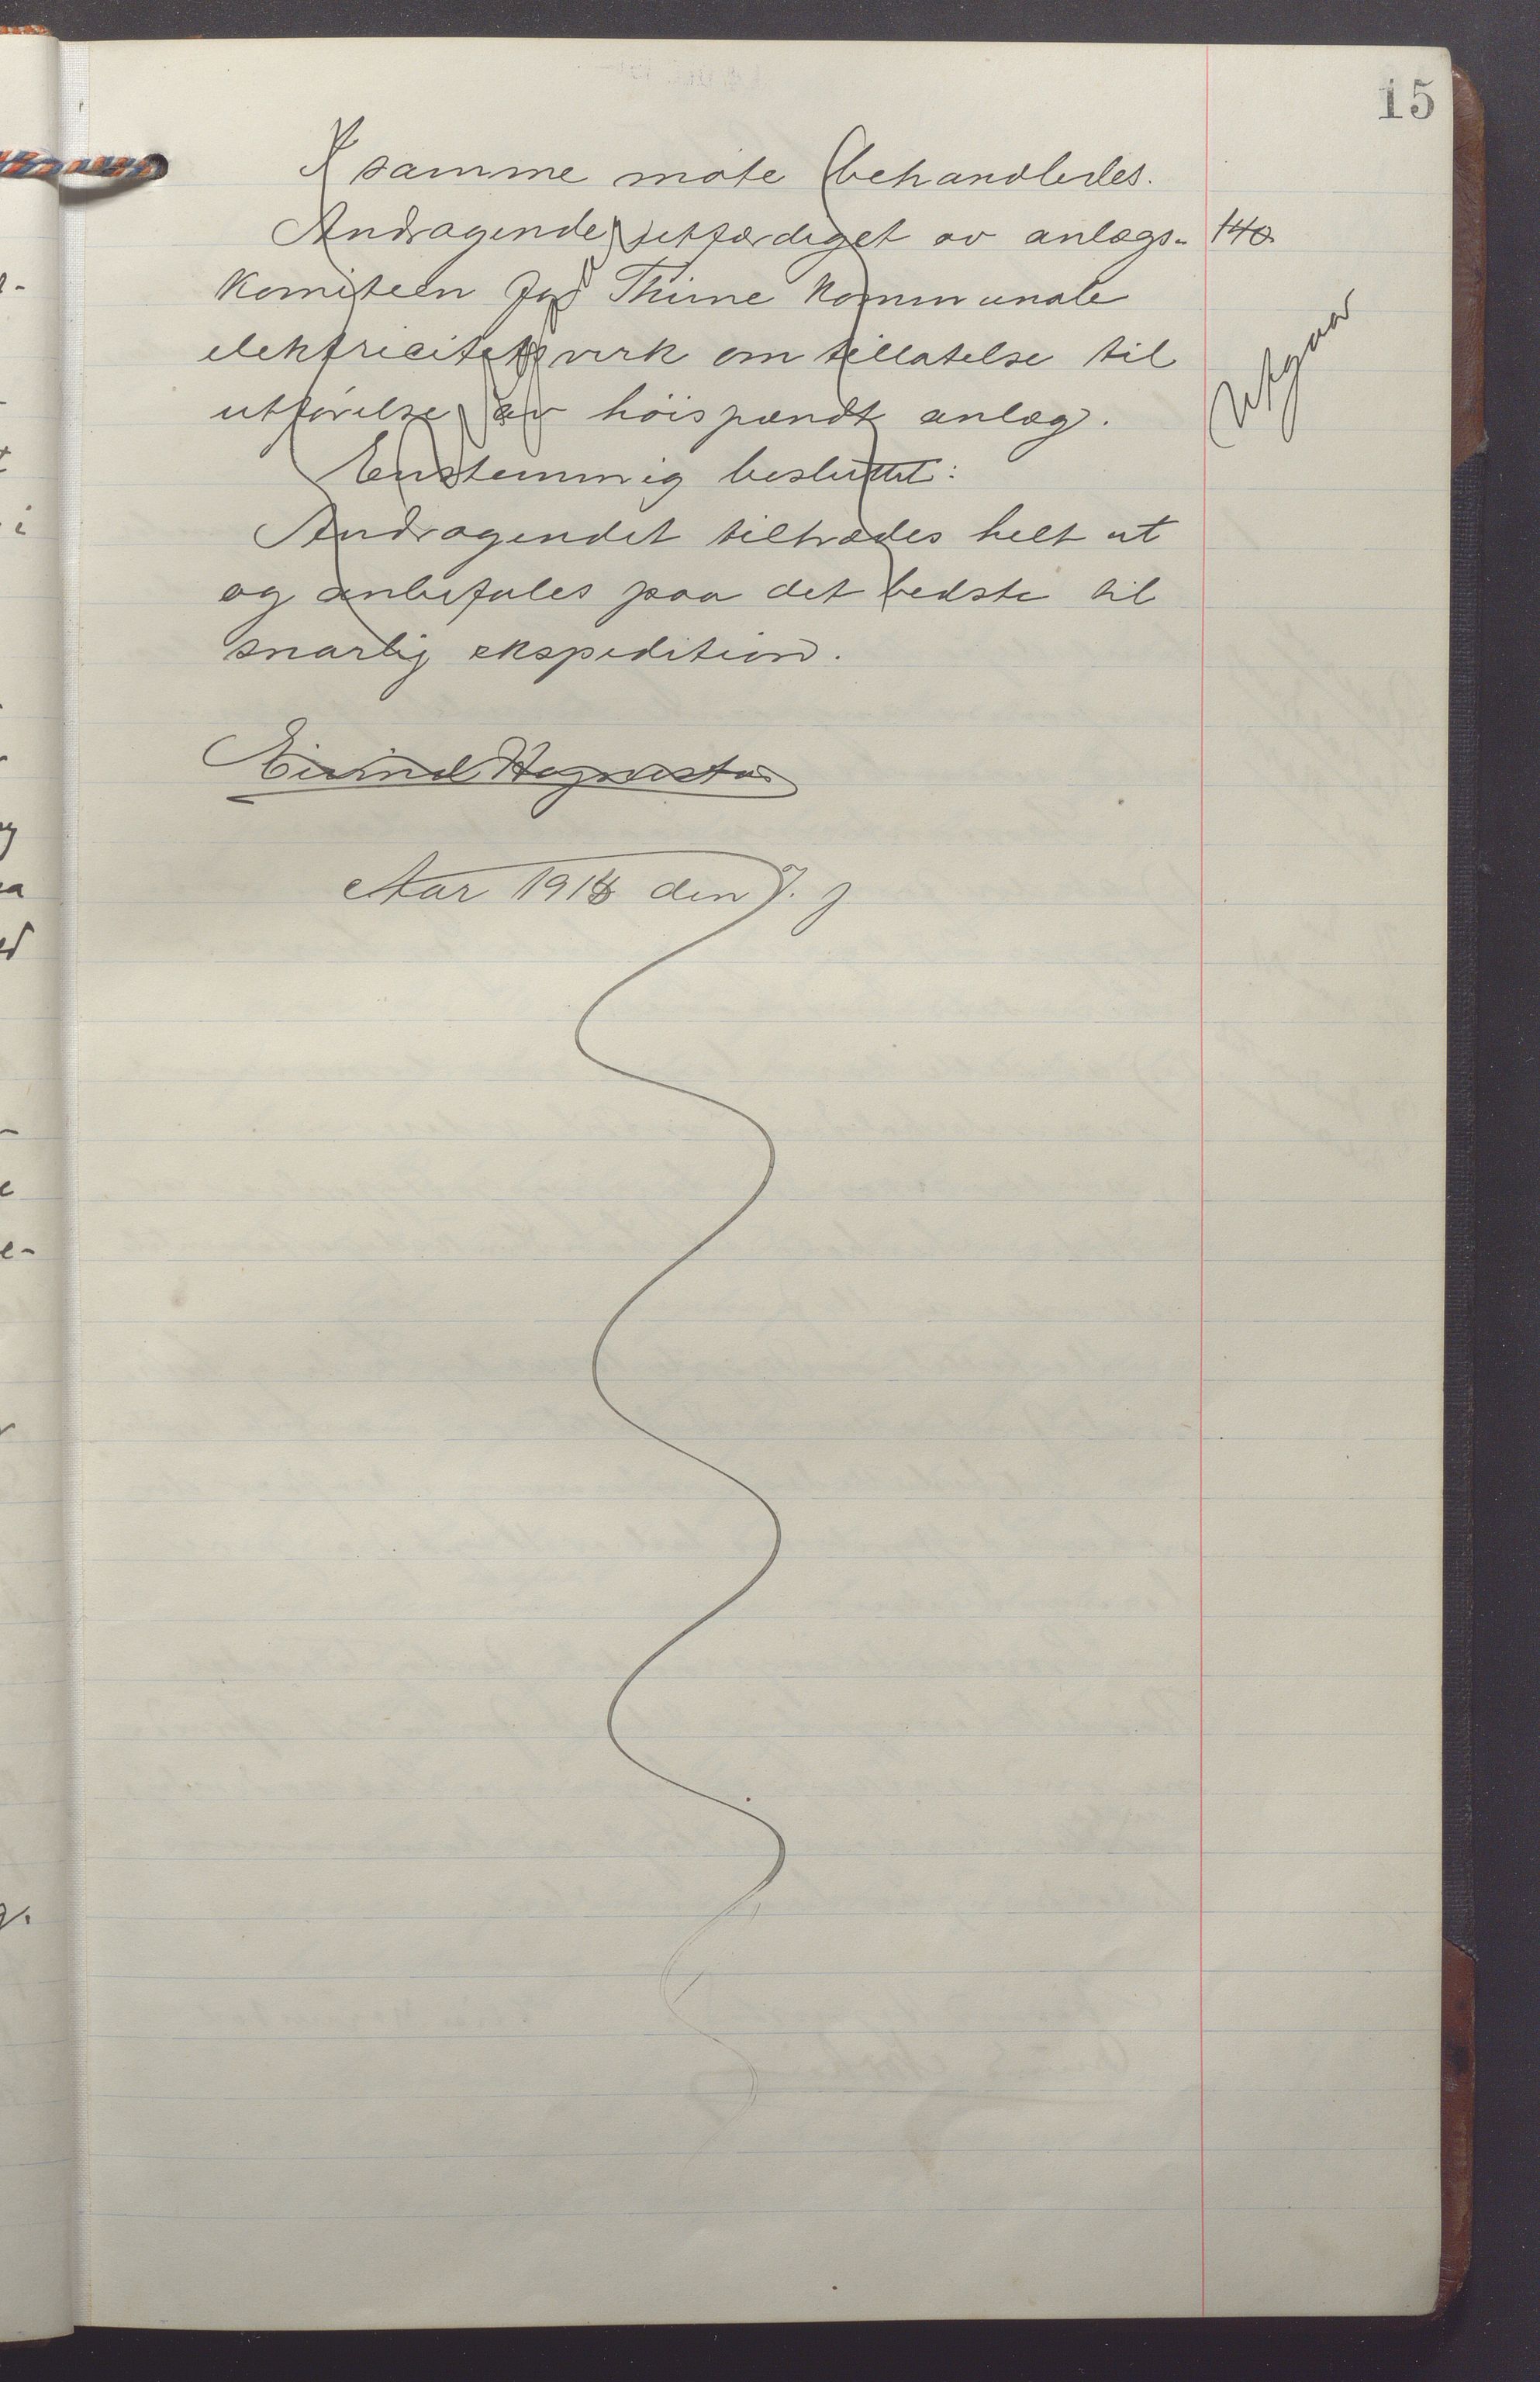 15
I samme møte behandledes.
Andragende utfærdiget av anlægs- 140
komiteen for Thime kommunale
elektricitetsverk om tillatelse til
utførelse av høispændt anlæg.
Utgaar
Enstemmig besluttet:
Andragendet tiltrædes helt ut
og anbefales paa det bedste til
snarlig ekspedition.
Eivind Hognestad
Aar 1918 den 7. j